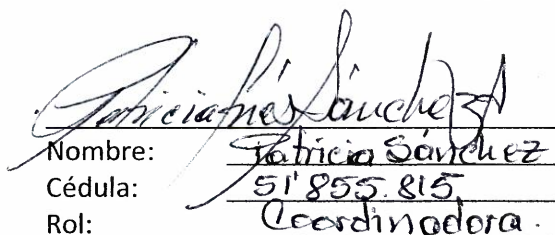 Patricia Inés Sánchez
Nombre: Patricia Sánchez
Cédula: 51'855.815
Rol: Coordinadora.